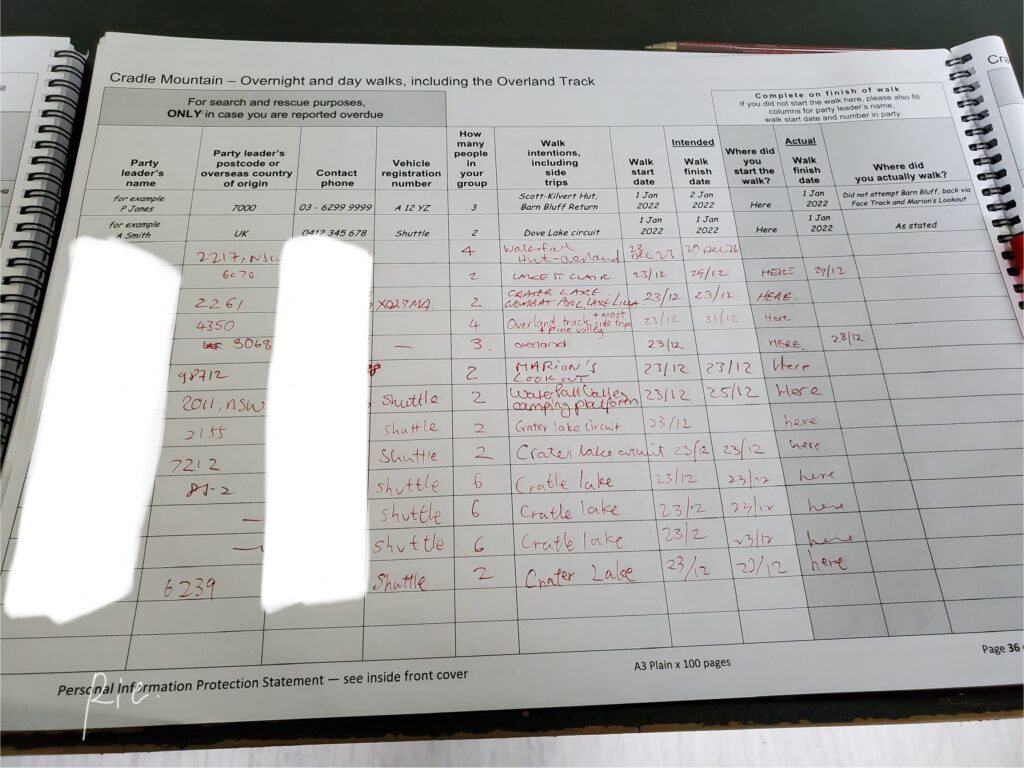 Cradle Mountain – Overnight and day walks, including the Overland Track
For search and rescue purposes,
ONLY in case you are reported overdue
Complete on finish of walk
If you did not start the walk here, please also fill
columns for party leader's name,
walk start date and number in party.
Party leader's name
Party leader's postcode or overseas country of origin
Contact phone
Vehicle registration number
How many people in your group
Walk intentions, including side trips
Intended
Walk start date
Walk finish date
Where did you start the walk?
Actual
Walk finish date
Where did you actually walk?
for example P Jones 7000 03 - 6299 9999 A 12 YZ 3 Scott-Kilvert Hut, Barn Bluff Return 1 Jan 2022 2 Jan 2022 Here 1 Jan 2022 Did not attempt Barn Bluff, back via Face Track and Marion's Lookout
for example A Smith UK 0412 345 678 Shuttle 2 Dove Lake circuit 1 Jan 2022 1 Jan 2022 Here 1 Jan 2022 As stated
2217, NSW 4 Waterfall Hut-overland 23 DEC 23 29 DEC 23
6070 2 LAKE ST CLAIR 23/12 29/12 HERE 29/12
2261 2 CRATER LAKE 23/12 23/12 HERE
4350 4 Overland track + most side trips + pine valley 23/12 31/12 Here
3068 — 3 overland 23/12 HERE 28/12
98712 2 MARION'S LOOKOUT 23/12 23/12 Here
2011, NSW Shuttle 2 Waterfall Valley camping platform 23/12 25/12 Here
2155 shuttle 2 Crater lake circuit 23/12 here
7212 Shuttle 2 Crater lake circuit 23/12 23/12 here
shuttle 6 Cratle lake 23/12 23/12 here
— shuttle 6 Cratle lake 23/12 23/12 here
— shuttle 6 Cratle lake 23/2 23/12 here
6239 Shuttle 2 Crater Lake 23/12 here
Personal Information Protection Statement — see inside front cover
A3 Plain x 100 pages
Page 36
Ric.